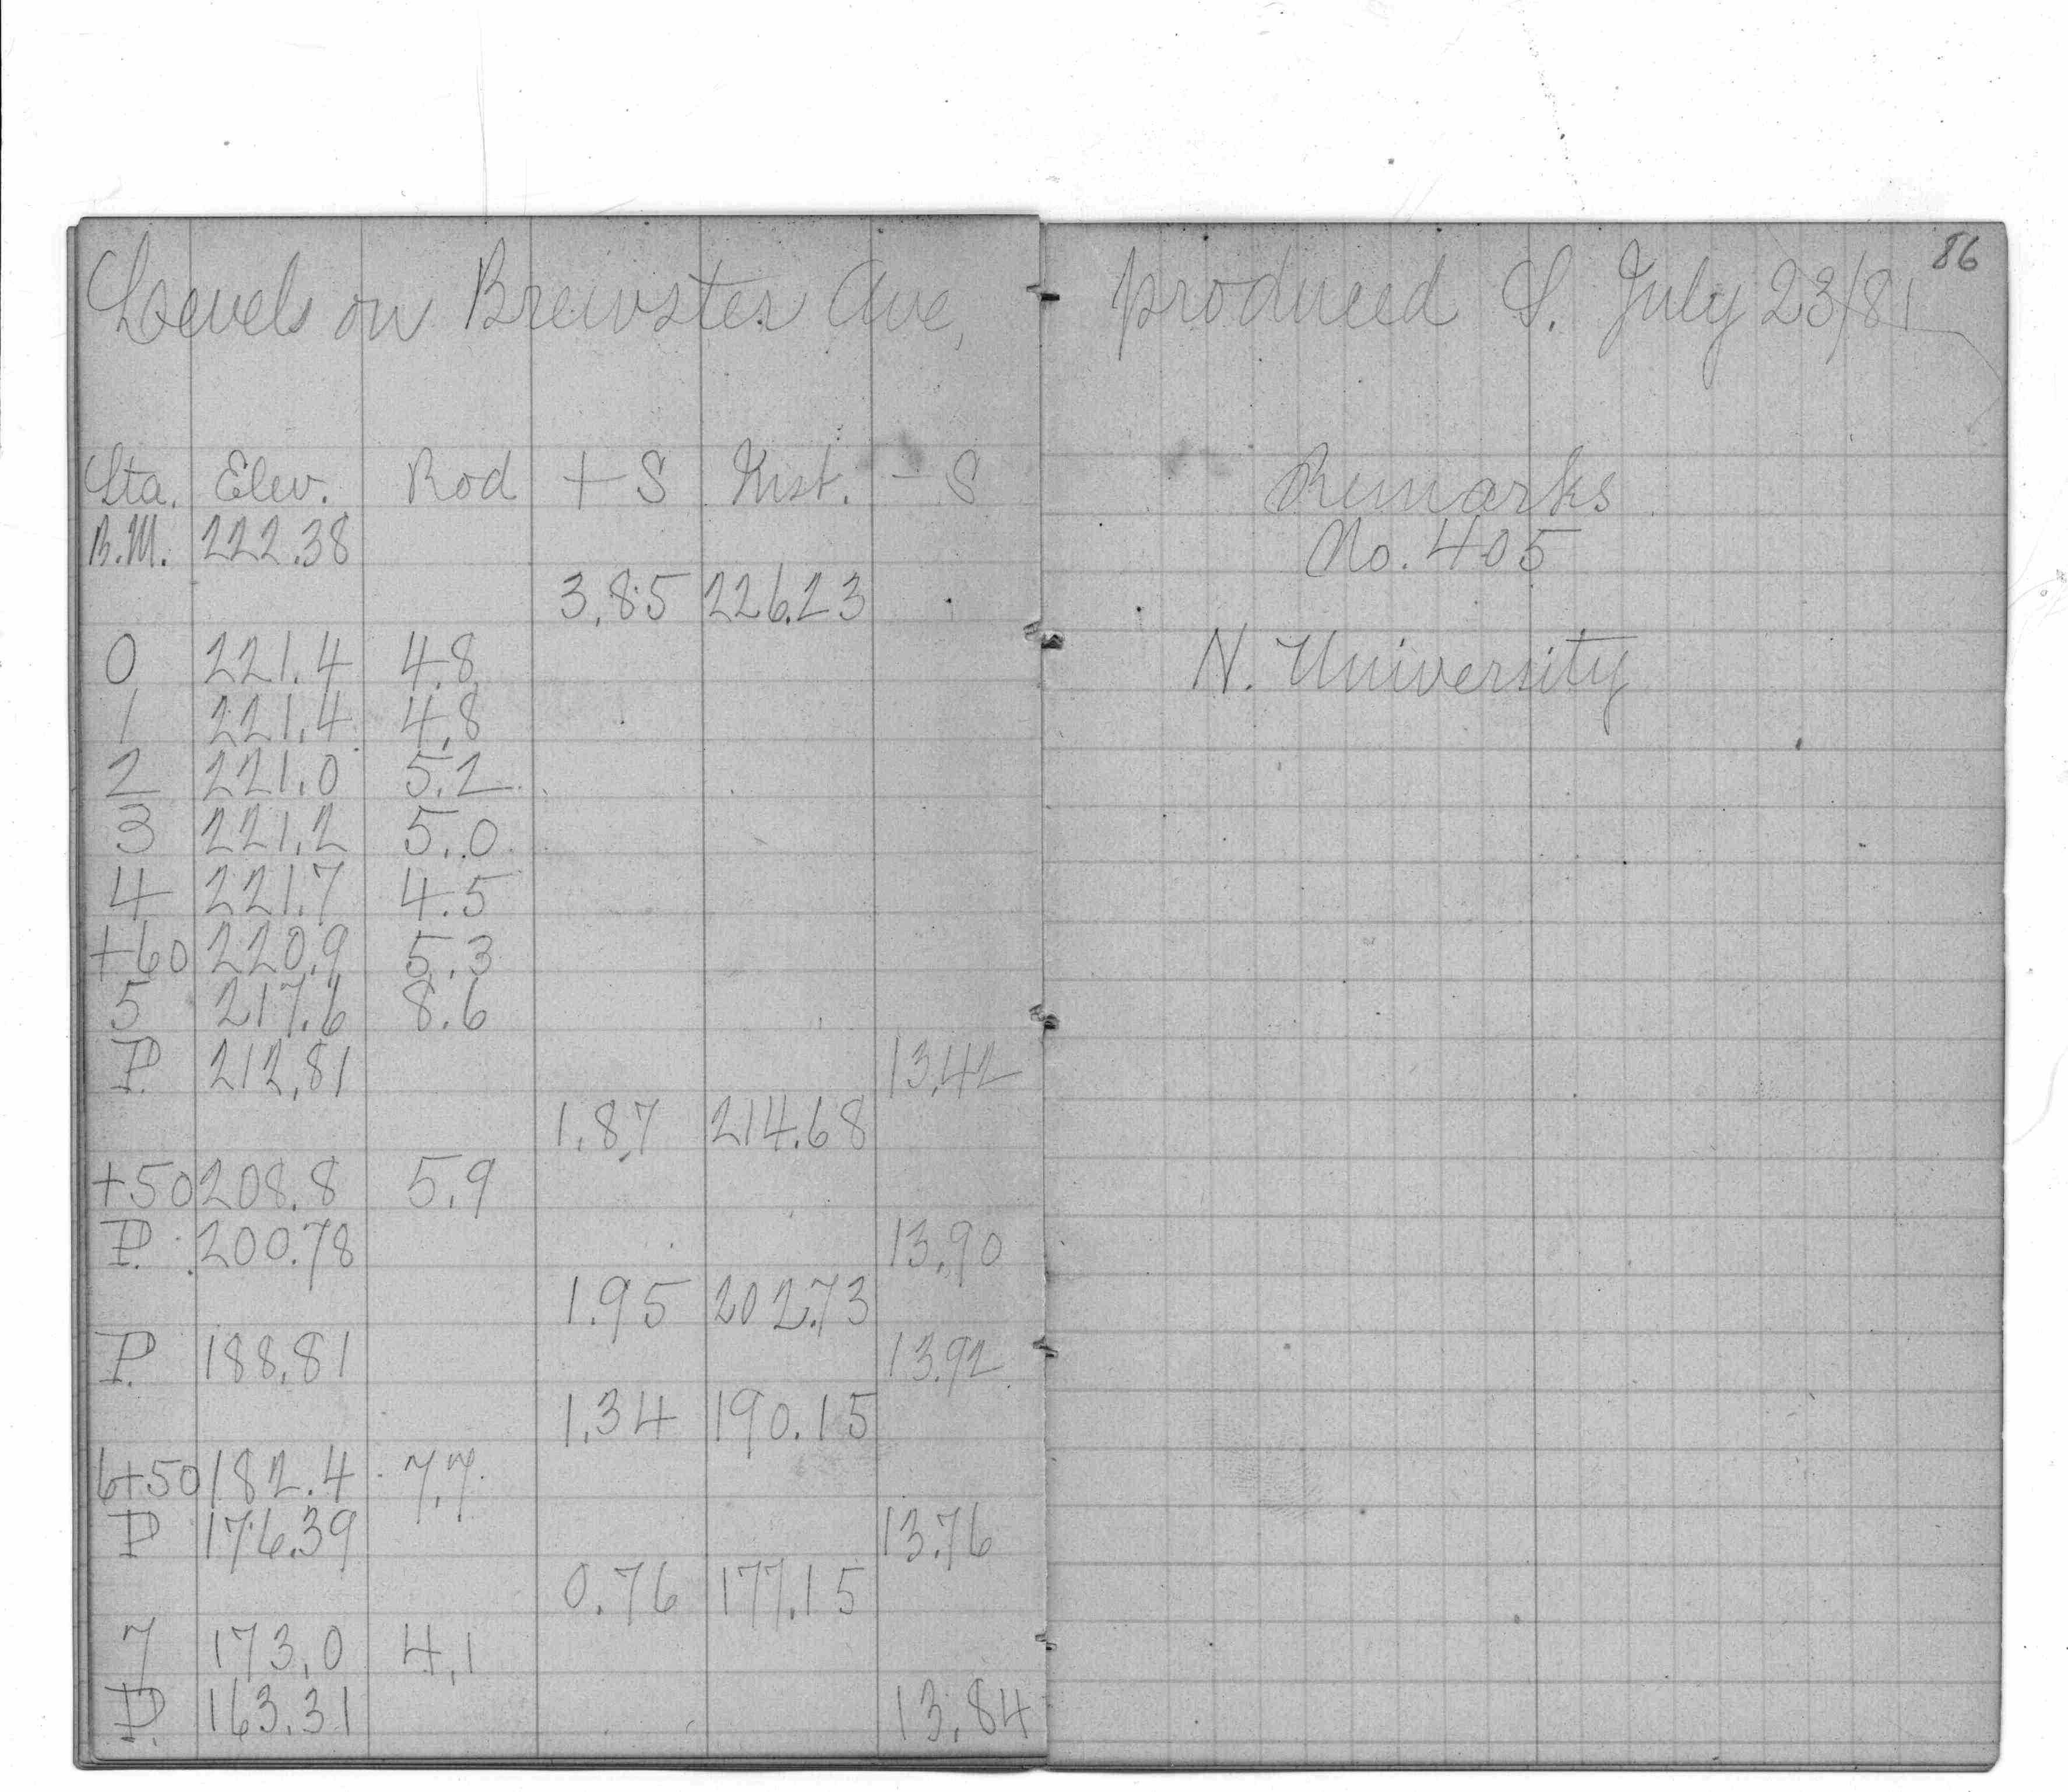 86
Levels on Brewster Ave, produced S. July 23/81
Sta. Elev. Rod + S Inst. - S Remarks
B.M. 222.38 No. 405
3.85 226.23
0 221.4 4.8 N. University
1 221.4 4.8
2 221.0 5.2
3 221.2 5.0
4 221.7 4.5
+60 220.9 5.3
5 217.6 8.6
P. 212.81 13.42
1.87 214.68
+50 208.8 5.9
P. 200.78 13.90
1.95 202.73
P. 188.81 13.92
1.34 190.15
6+50 182.4 7.7
P 176.39 13.76
0.76 177.15
7 173.0 4.1
P. 163.31 13.84